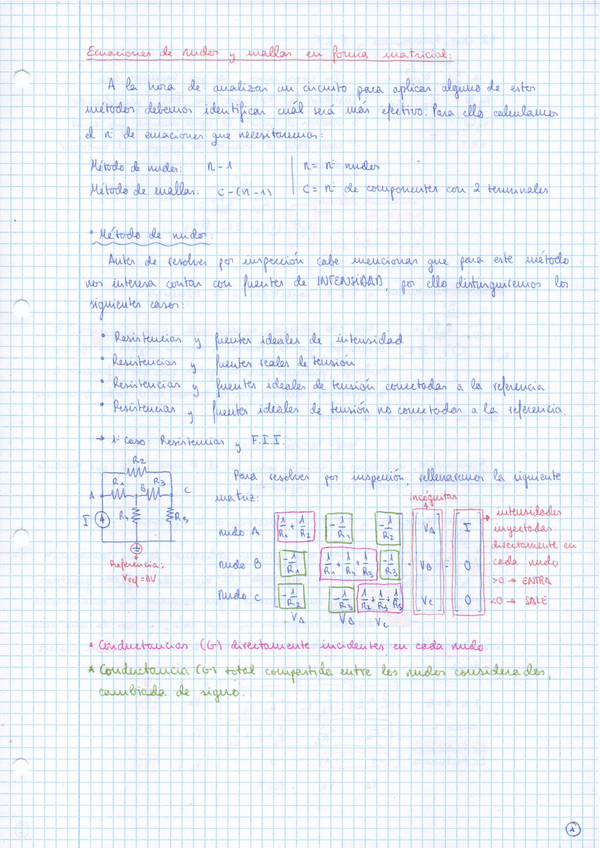 Ecuaciones de nudos y mallas en forma matricial:
A la hora de analizar un circuito para aplicar alguno de estos
métodos debemos identificar cuál será más efectivo. Para ello calculamos
el nº de ecuaciones que necesitaremos:
Método de nudos: n-1 | n= nº nudos
Método de mallas: c-(n-1) | c= nº de componentes con 2 terminales
* Método de nudos:
Antes de resolver por inspección cabe mencionar que para este método
nos interesa contar con fuentes de INTENSIDAD, por ello distinguiremos los
siguientes casos:
• Resistencias y fuentes ideales de intensidad
• Resistencias y fuentes reales de tensión
• Resistencias y fuentes ideales de tensión conectadas a la referencia
• Resistencias y fuentes ideales de tensión no conectadas a la referencia.
→ 1º Caso: Resistencias y F.I.I.
R2
A R1 B R3 C
I R4 R5
Referencia:
Vref=0V
Para resolver por inspección, rellenaremos la siguiente
matriz:
incógnitas
nudo A 1/R1 + 1/R2 -1/R1 -1/R2 VA I
nudo B -1/R1 1/R1 + 1/R4 + 1/R3 -1/R3 · VB = 0
Nudo C -1/R2 -1/R3 1/R2 + 1/R3 + 1/R5 VC 0
VA VB VC
→ intensidades
inyectadas
directamente en
cada nudo
>0 → ENTRA
<0 → SALE
* Conductancias (G) directamente incidentes en cada nudo
* Conductancia (G) total compartida entre los nudos considerados,
cambiada de signo.
1